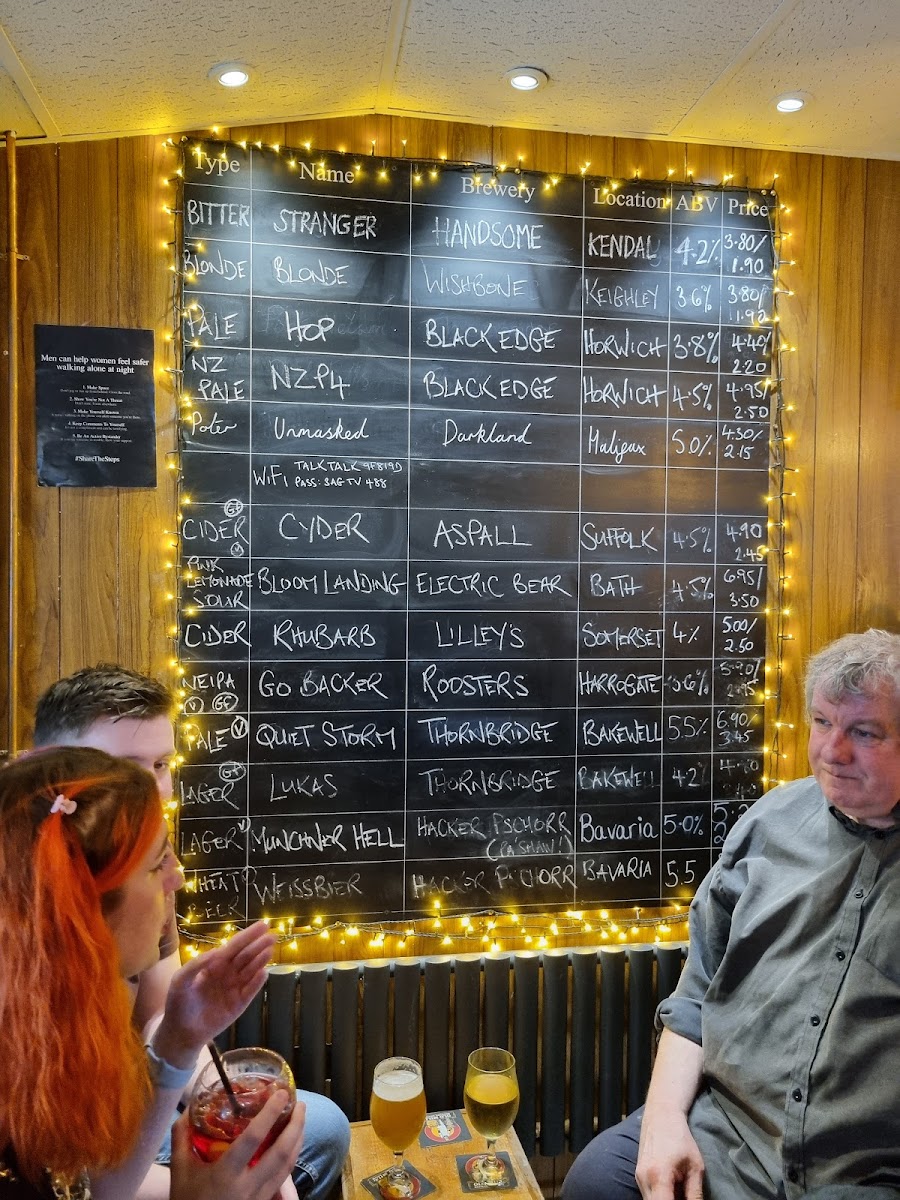 Type Name Brewery Location ABV Price
BITTER STRANGER HANDSOME KENDAL 4.2% 3.80/ 1.90
BLONDE BLONDE WISHBONE KEIGHLEY 3.6% 3.80/ 1.90
PALE HOP BLACK EDGE HORWICH 3.8% 4.40/ 2.20
NZ PALE NZP4 BLACK EDGE HORWICH 4.5% 4.95/ 2.50
Poter Unmasked Darkland 5.0% 4.30/ 2.15
WiFi TALKTALK 9F819D
PASS: 3AGTV488
CIDER GF V CYDER ASPALL SUFFOLK 4.5% 4.90 2.45
PINK LEMONADE SOUR BLOOM LANDING ELECTRIC BEAR BATH 4.5% 6.95/ 3.50
CIDER RHUBARB LILLEY'S SOMERSET 4% 5.00/ 2.50
NEIPA V GF GO BACKER ROOSTERS HARROGATE 3.6% 5.90/ 2.95
PALE V QUIET STORM THORNBRIDGE BAKEWELL 5.5% 6.90/ 3.45
LAGER GF LUKAS THORNBRIDGE BAKEWELL 4.2
LAGER V MUNCHNER HELL HACKER PSCHORR (PA SHAW!) Bavaria 5.0%
WHEAT BEER WEISSBIER HACKER PSCHORR BAVARIA 5.5
Men can help women feel safer
walking alone at night
1. Make Space
2. Show You're Not A Threat
3. Make Yourself Known
4. Keep Comments To Yourself
5. Be An Active Bystander
#ShareTheSteps